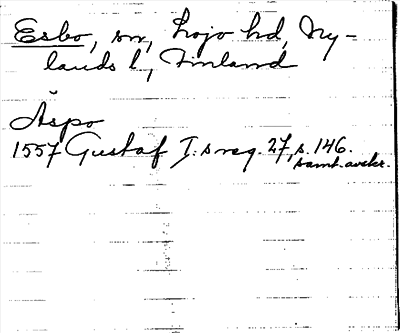 Esbo, sn, Lojo hd, Ny-
lands l, Finland
Äspo
1557 Gustaf I:s reg. 27, s. 146.
samt. avskr.